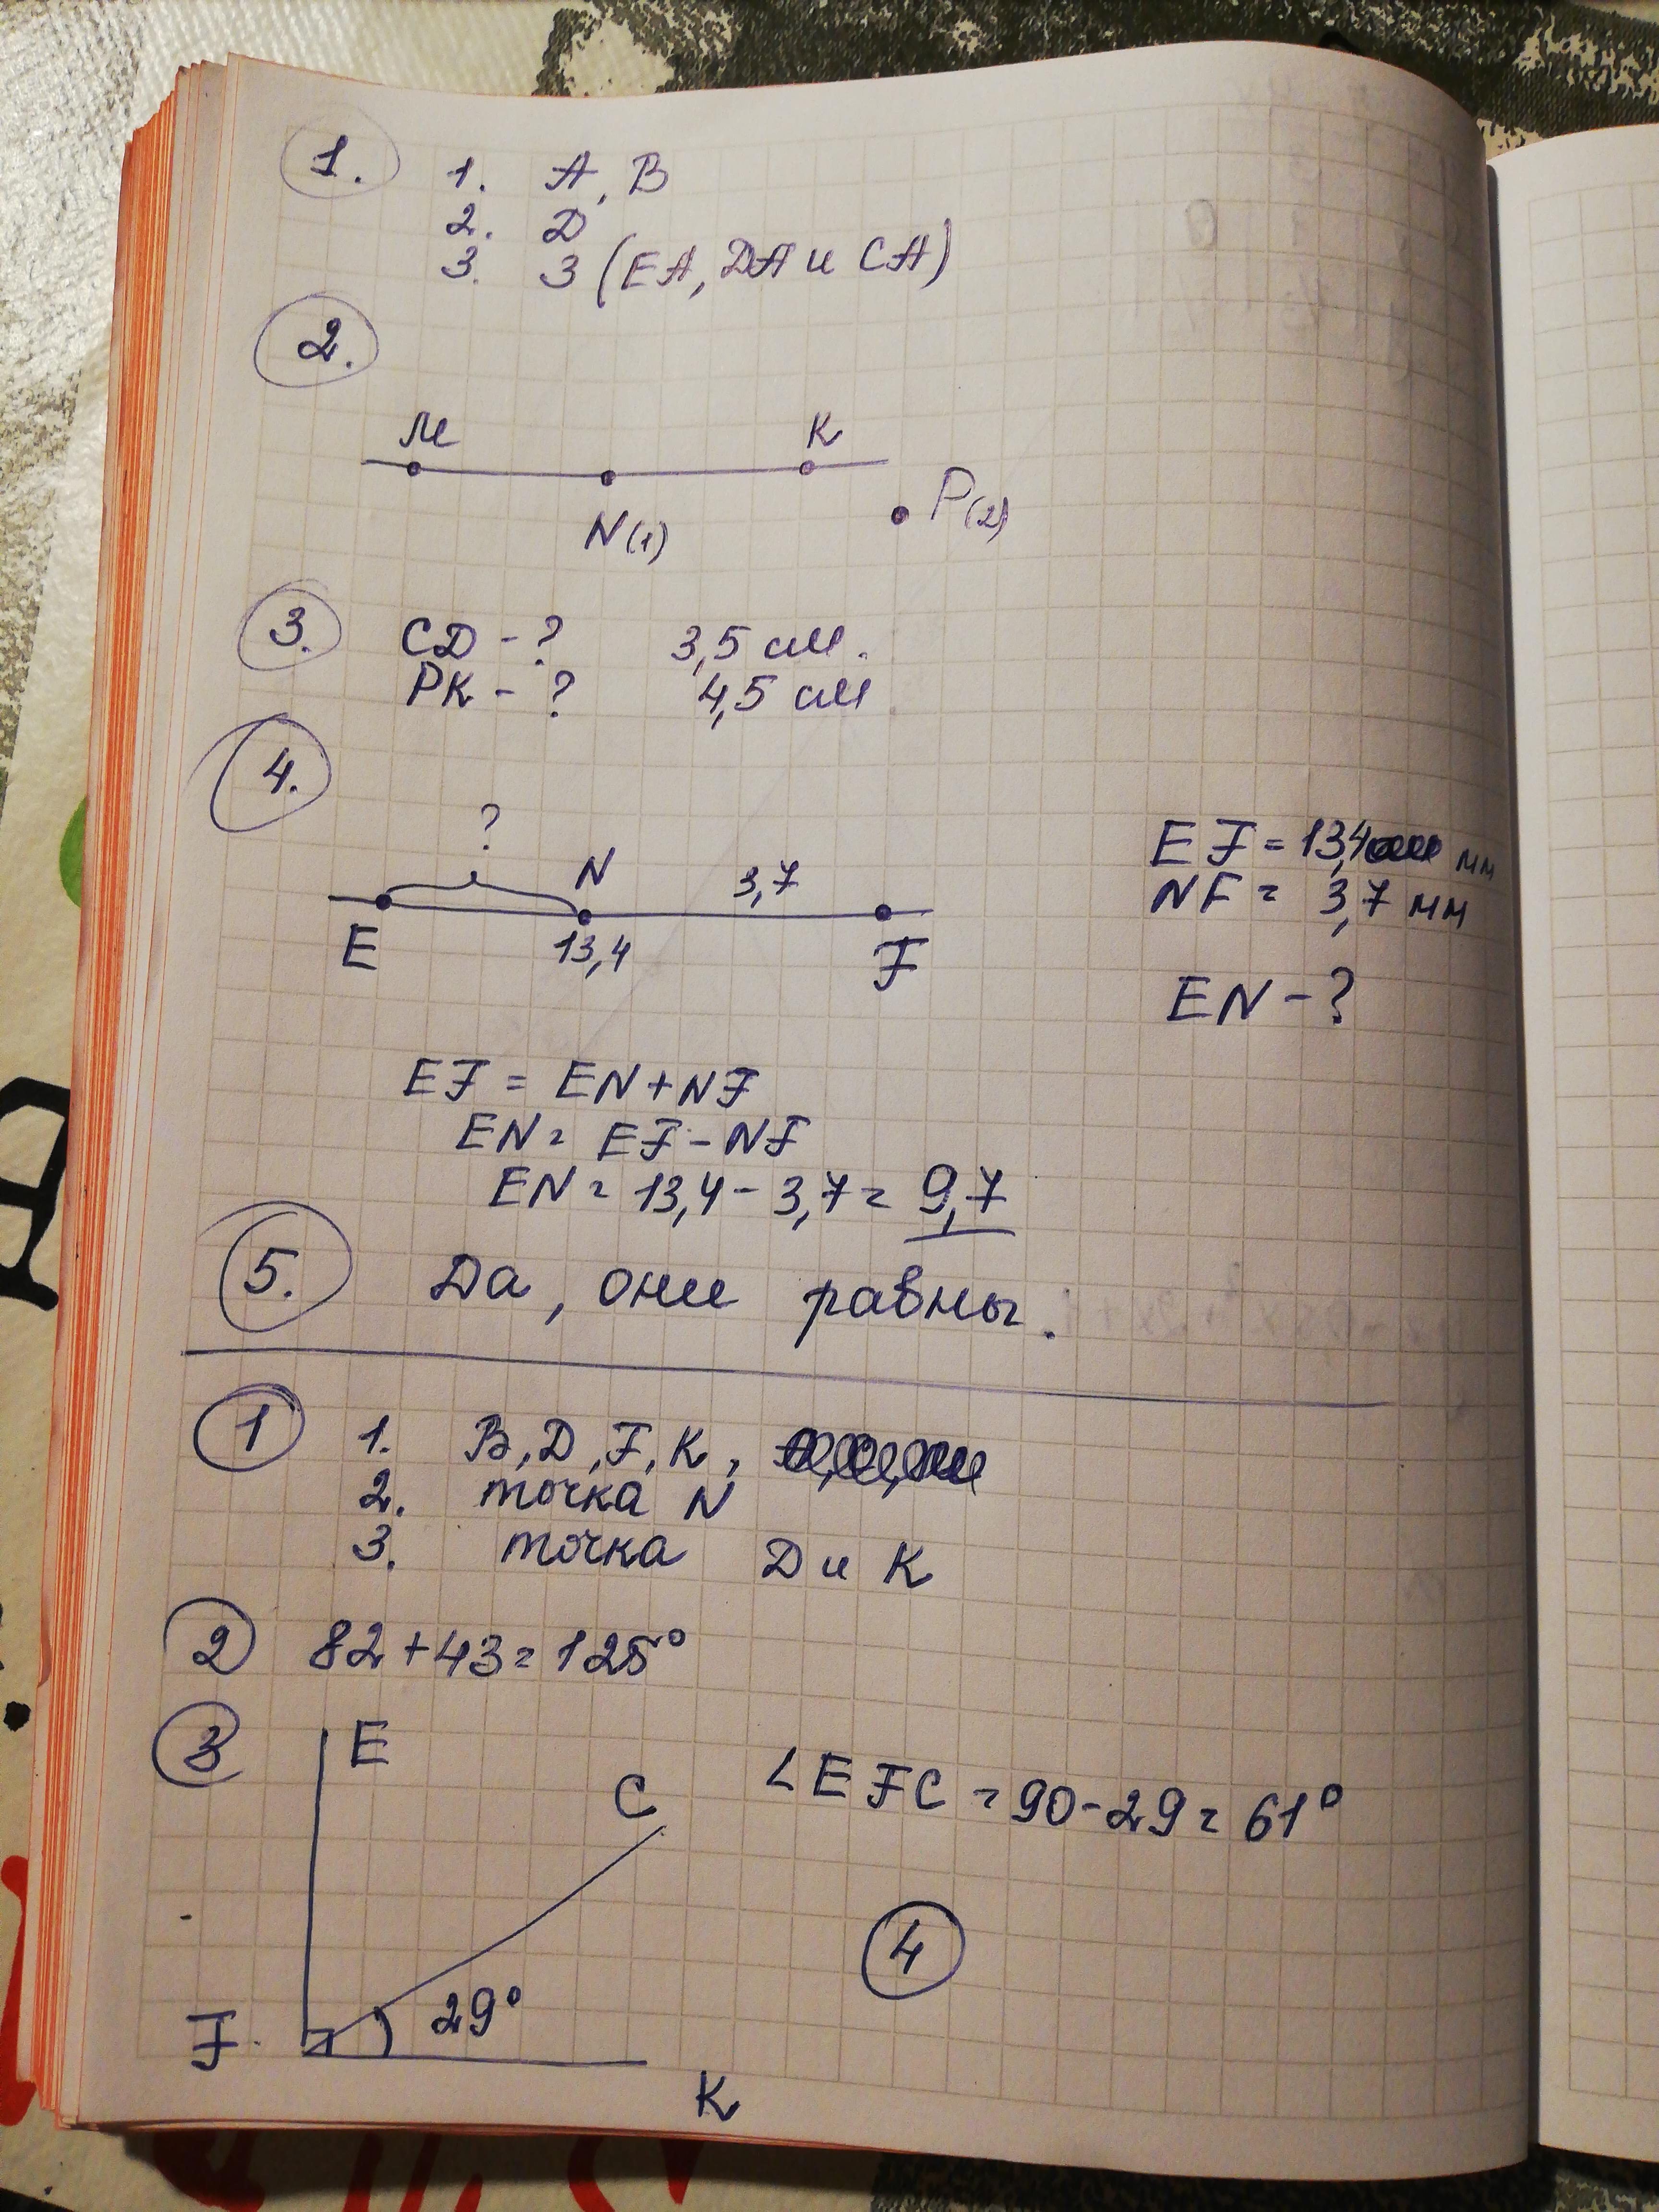 1. 1. A, B
2. D
3. 3 (EA, DA и CA)
2.
M K
N(1) P(2)
3. CD - ? 3,5 см.
PK - ? 4,5 см
4.
?
N 3,7
E 13,4 F
EF = 13,4 мм
NF = 3,7 мм
EN - ?
EF = EN + NF
EN = EF - NF
EN = 13,4 - 3,7 = 9,7
5. Да, они равны.
1 1. B, D, F, K,
2. точка N
3. точка D и K
2 82 + 43 = 125°
3 E
C
∠EFC = 90 - 29 = 61°
29°
F
K
4